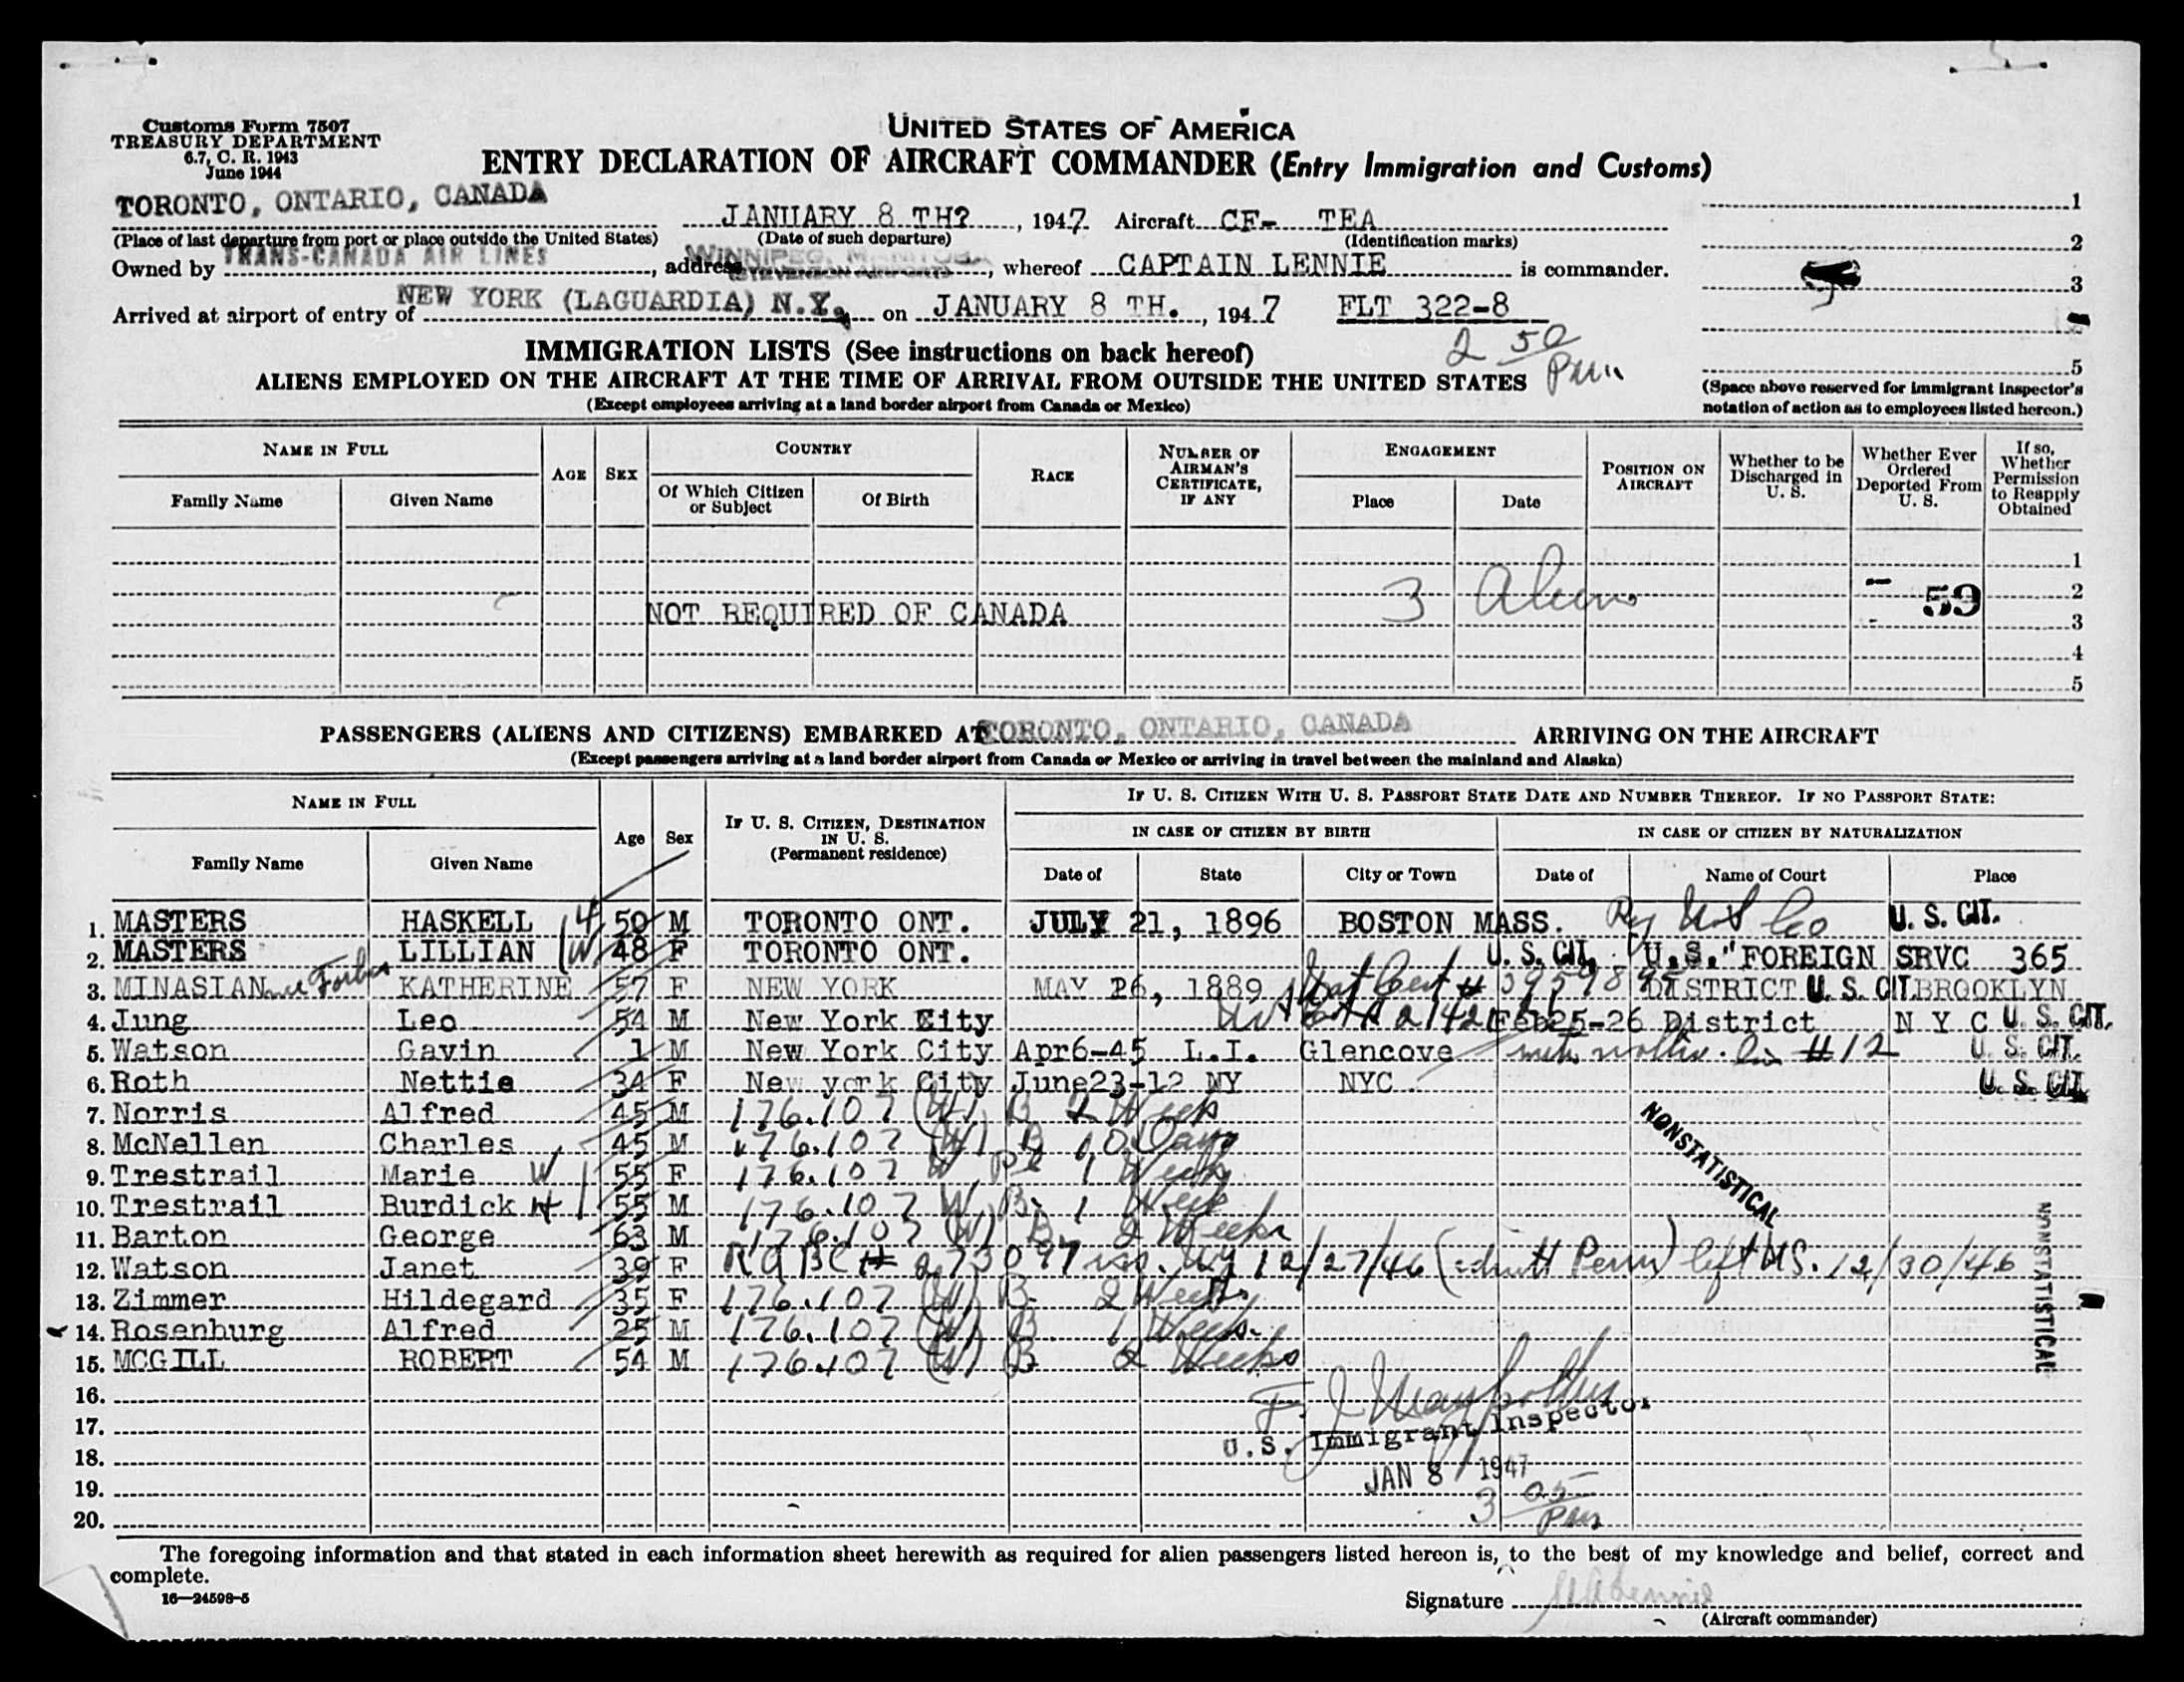 Customs Form 7507
TREASURY DEPARTMENT
6.7, C. R. 1943
June 1944
UNITED STATES OF AMERICA
ENTRY DECLARATION OF AIRCRAFT COMMANDER (Entry Immigration and Customs)
TORONTO, ONTARIO, CANADA JANUARY 8 TH?, 1947 Aircraft CF- TEA 1
(Place of last departure from port or place outside the United States) (Date of such departure) (Identification marks) 2
Owned by TRANS-CANADA AIR LINES, address WINNIPEG, MANITOBA, whereof CAPTAIN LENNIE is commander. 3
Arrived at airport of entry of NEW YORK (LAGUARDIA) N.Y. on JANUARY 8 TH., 1947 FLT 322-8
2 50 Pm
IMMIGRATION LISTS (See instructions on back hereof) 5
ALIENS EMPLOYED ON THE AIRCRAFT AT THE TIME OF ARRIVAL FROM OUTSIDE THE UNITED STATES
(Except employees arriving at a land border airport from Canada or Mexico)
(Space above reserved for immigrant inspector's notation of action as to employees listed hereon.)
NAME IN FULL AGE SEX COUNTRY RACE NUMBER OF AIRMAN'S CERTIFICATE, IF ANY ENGAGEMENT POSITION ON AIRCRAFT Whether to be Discharged in U. S. Whether Ever Ordered Deported From U. S. If so, Whether Permission to Reapply Obtained
Family Name Given Name Of Which Citizen or Subject Of Birth Place Date
1
2
NOT REQUIRED OF CANADA 3 Aliens 59 3
4
5
PASSENGERS (ALIENS AND CITIZENS) EMBARKED AT TORONTO, ONTARIO, CANADA ARRIVING ON THE AIRCRAFT
(Except passengers arriving at a land border airport from Canada or Mexico or arriving in travel between the mainland and Alaska)
NAME IN FULL Age Sex IF U. S. CITIZEN, DESTINATION IN U. S. (Permanent residence) IF U. S. CITIZEN WITH U. S. PASSPORT STATE DATE AND NUMBER THEREOF. IF NO PASSPORT STATE:
IN CASE OF CITIZEN BY BIRTH IN CASE OF CITIZEN BY NATURALIZATION
Family Name Given Name Date of State City or Town Date of Name of Court Place
1. MASTERS HASKELL H 50 M TORONTO ONT. JULY 21, 1896 BOSTON MASS. U. S. CIT.
2. MASTERS LILLIAN W 48 F TORONTO ONT. U. S. CIT. "U.S." FOREIGN SRVC 365
3. MINASIAN nee Forbes KATHERINE 57 F NEW YORK MAY 26, 1889 Nat Cert # DISTRICT U. S. CIT. BROOKLYN
4. Jung Leo 54 M New York City Feb25-26 District N Y C U. S. CIT.
5. Watson Gavin 1 M New York City Apr6-45 L.I. Glencove with mother. #12 U. S. CIT.
6. Roth Nettie 34 F New york City June23-12 NY NYC U. S. CIT.
7. Norris Alfred 45 M 176.107 (W) B 2 Weeks
8. McNellen Charles 45 M 176.107 (W) B 10 Days
9. Trestrail Marie W 55 F 176.107 W Pl 1 Week
10. Trestrail Burdick H 55 M 176.107 W B. 1 Week
11. Barton George 63 M 176.107 (W) B. 2 Weeks
12. Watson Janet 39 F R A BC # 273097 iss. NY 12/27/46 (admitt Perm) left US. 12/30/46
13. Zimmer Hildegard 35 F 176.107 (W) B. 2 Weeks
14. Rosenburg Alfred 25 M 176.107 (W) B 1 Week.
15. MCGILL ROBERT 54 M 176.107 (W) B 2 Weeks
NONSTATISTICAL
NONSTATISTICAL
16.
17.
U.S. Immigrant Inspector
18.
JAN 8 1947
19.
3 05 Pm
20.
The foregoing information and that stated in each information sheet herewith as required for alien passengers listed hereon is, to the best of my knowledge and belief, correct and
complete.
16—24598-5
Signature
(Aircraft commander)